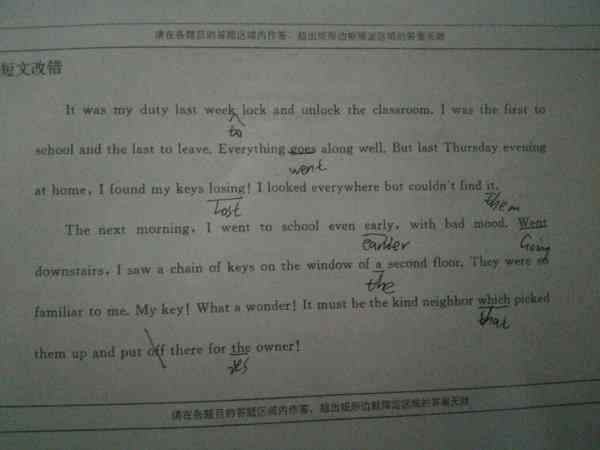 请在各题目的答题区域内作答，超出矩形边框限定区域的答案无效
短文改错
It was my duty last week lock and unlock the classroom. I was the first to
to
school and the last to leave. Everything goes along well. But last Thursday evening
went
at home, I found my keys losing! I looked everywhere but couldn't find it.
Lost them
The next morning, I went to school even early, with bad mood. Went
earlier Going
downstairs, I saw a chain of keys on the window of a second floor. They were so
the
familiar to me. My key! What a wonder! It must be the kind neighbor which picked
that
them up and put off there for the owner!
请在各题目的答题区域内作答，超出矩形边框限定区域的答案无效